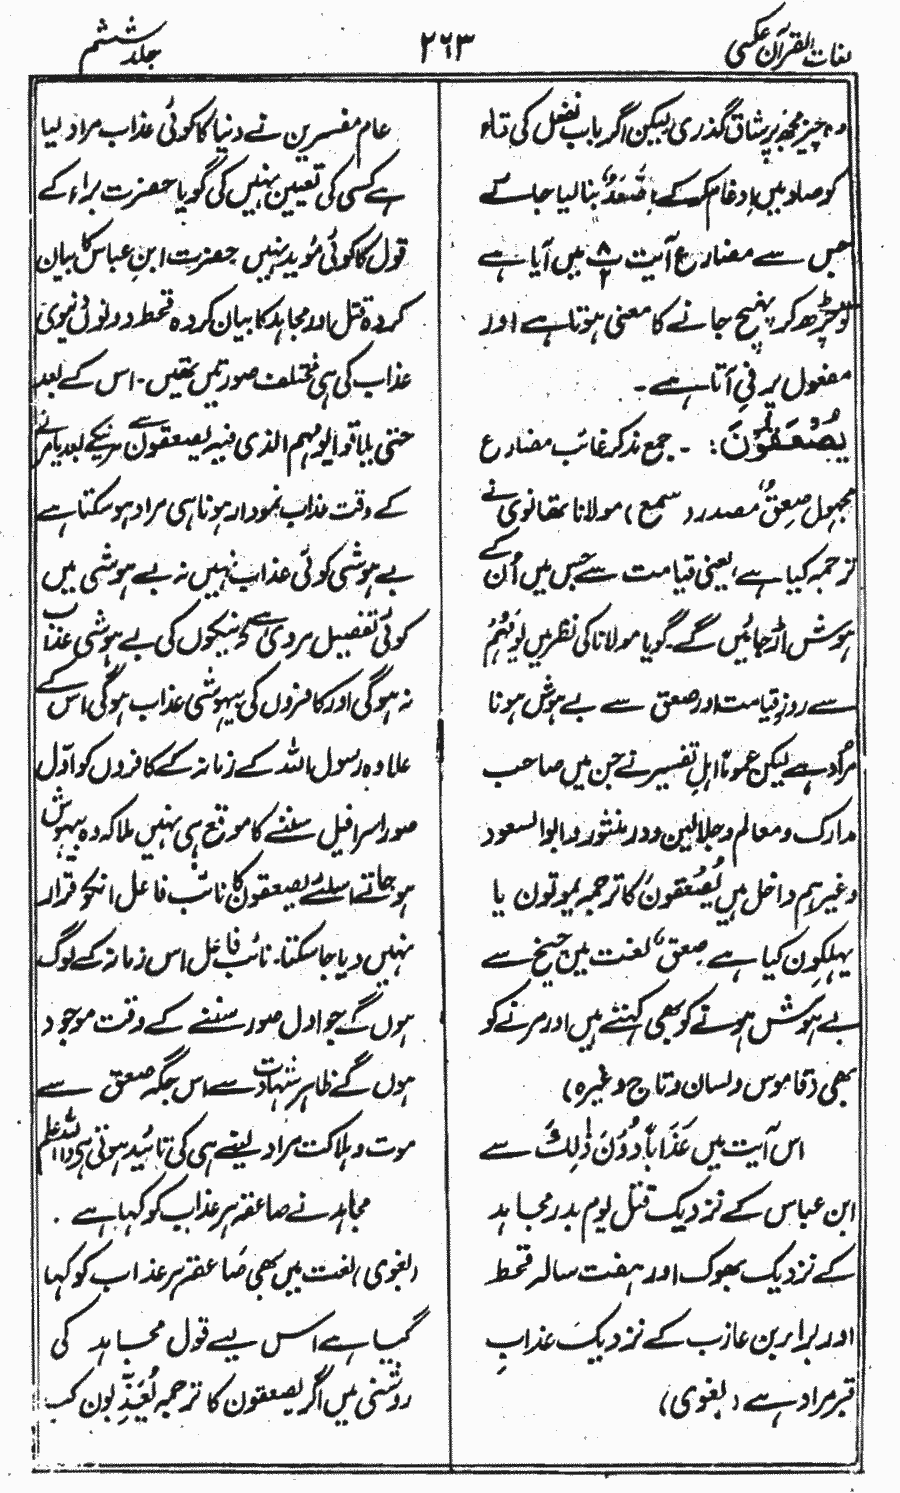 لغات القرآن عکسی
۲۶۳
جلد ششم
وہ چیز مجھ پر شاق گذری لیکن اگر باب تفعل کی تاء
کو صاد میں ادغام کر کے یَصَّعَّدُ بنا لیا جائے
جس سے مضارع آیت میں آیا ہے
تو چڑھ کر پہنچ جانے کا معنی ہوتا ہے اور
مفعول پر فی آتا ہے۔
یُصْعَقُوْنَ: ۔ جمع مذکر غائب مضارع
مجہول صَعِقٌ مصدر (سمع) مولانا تھانوی نے
ترجمہ کیا ہے، یعنی قیامت سے جس میں اُن کے
ہوش اڑ جائیں گے۔ گویا مولانا کی نظر میں یَوْمَهُمْ
سے روز قیامت اور صعق سے بے ہوش ہونا
مراد ہے لیکن عموماً اہل تفسیر نے جن میں صاحب
مدارک و معالم و جلالین و درمنثور و ابوالسعود
وغیرہم داخل ہیں یُصْعَقُوْنَ کا ترجمہ یموتون یا
یہلکون کیا ہے صعق لغت میں چیخ سے
بے ہوش ہونے کو بھی کہتے ہیں اور مرنے کو
بھی (قاموس و لسان و تاج وغیرہ)
اس آیت میں عَذَابًا دُوْنَ ذٰلِکَ سے
ابن عباس کے نزدیک قتل یوم بدر مجاہد
کے نزدیک بھوک اور ہفت سالہ قحط
اور براء بن عازب کے نزدیک عذاب
قبر مراد ہے (بغوی)
عام مفسرین نے دنیا کا کوئی عذاب مراد لیا
ہے کسی کی تعیین نہیں کی گویا حضرت براء کے
قول کا کوئی مؤید نہیں حضرت ابن عباس کا بیان
کردہ قتل اور مجاہد کا بیان کردہ قحط دونوں دنیوی
عذاب کی ہی مختلف صورتیں تھیں۔ اس کے بعد
حتی یلاقوا یومہم الذی فیہ یصعقون سے مرنے کے بعد یا مرنے
کے وقت عذاب نمودار ہونا ہی مراد ہو سکتا ہے
بے ہوشی کوئی عذاب نہیں نہ بے ہوشی میں
کوئی تفصیل مروی ہے کیونکہ بے ہوشی عذاب
نہ ہوگی اور کافروں کی بیہوشی عذاب ہوگی اس کے
علاوہ رسول اللہ کے زمانہ کے کافروں کو اول
صور اسرافیل سننے کا موقع ہی نہیں ملا کہ وہ بیہوش
ہو جاتے اسلئے یصعقون کا نائب فاعل انکو قرار
نہیں دیا جا سکتا۔ نائب فاعل اس زمانہ کے لوگ
ہوں گے جو اول صور سننے کے وقت موجود
ہوں گے ظاہر شہادت ہے اس جگہ صعق سے
موت و ہلاکت مراد لینے ہی کی تائید ہوتی ہے واللہ اعلم
مجاہد نے صاعقہ ہر عذاب کو کہا ہے۔
(بغوی) لغت میں بھی صاعقہ ہر عذاب کو کہا
گیا ہے اس لیے قول مجاہد کی
روشنی میں اگر یصعقون کا ترجمہ یُعَذَّبُوْنَ کب